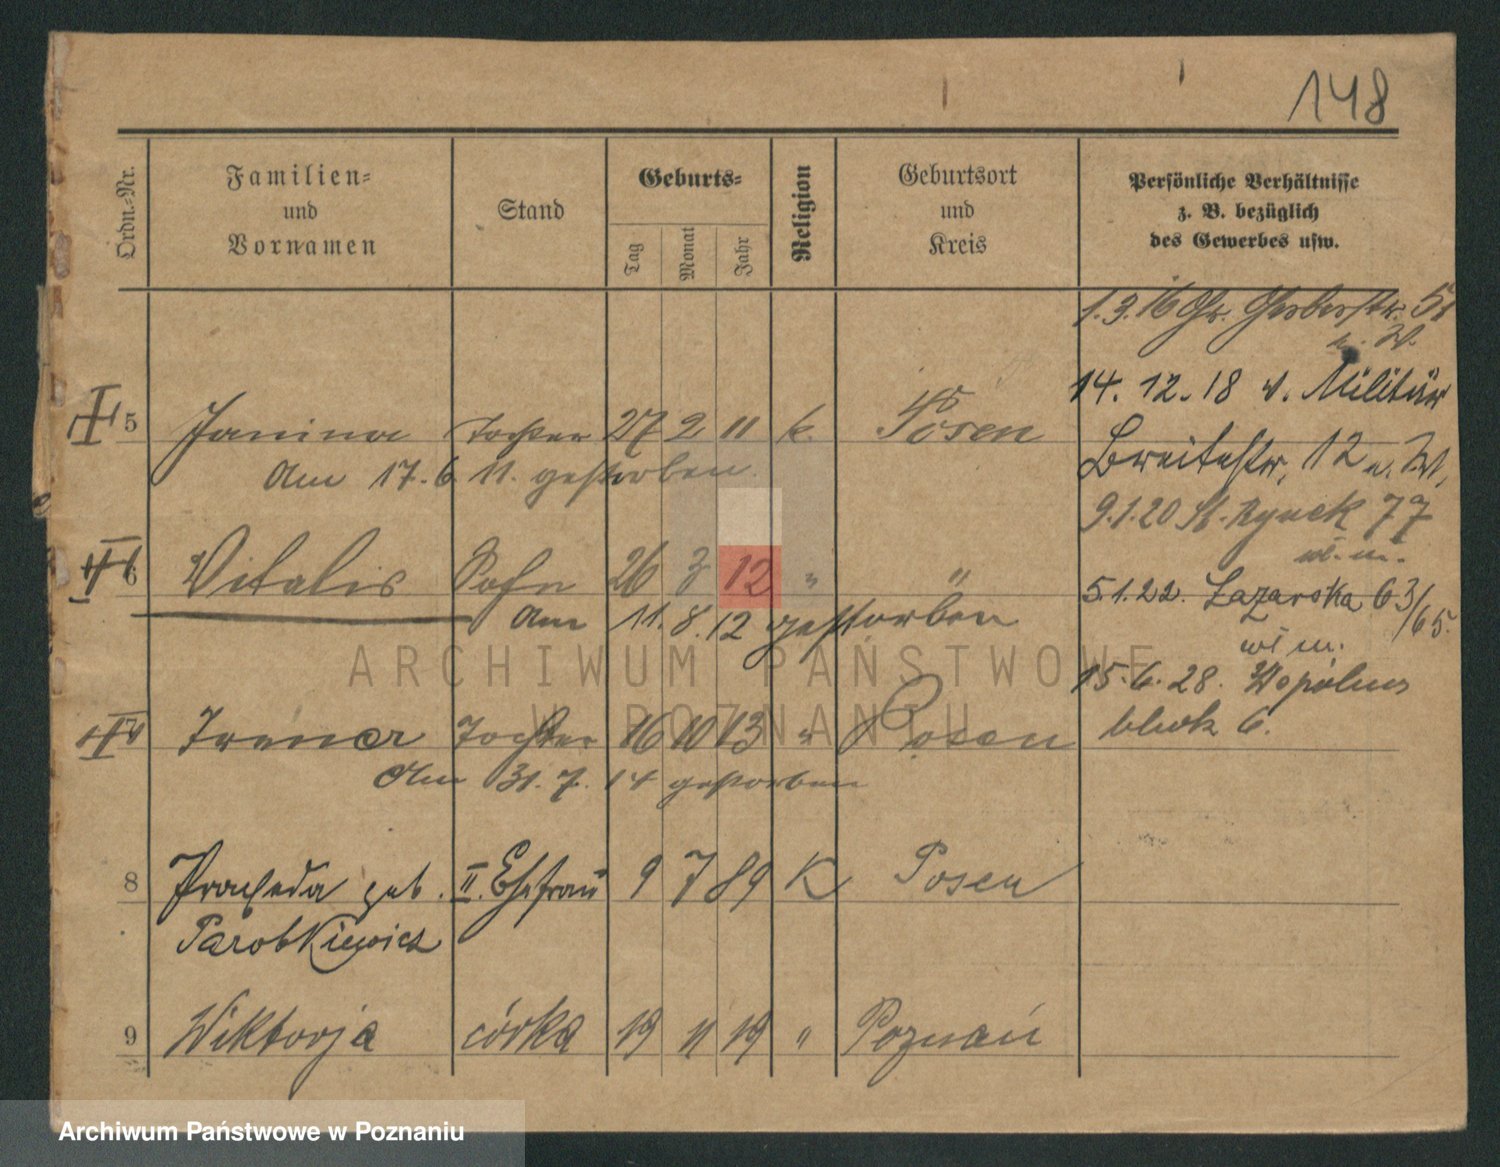 148
Ordn.-Nr.
Familien-
und
Vornamen
Stand
Geburts-
Tag
Monat
Jahr
Religion
Geburtsort
und
Kreis
Persönliche Verhältnisse
z. B. bezüglich
des Gewerbes usw.
1.3.16 Gr. Gerberstr. 51
b. W.
14. 12. 18 v. Militär
Breitestr. 12 b. W.
9.1.20 St. Rynek 77
wł. m.
5.1.22. Łazarska 63/65.
wł m.
15.6.28.
blok 6.
5 Janina Tochter 27 2 11 k. Posen
Am 17. 6 11. gestorben
6 Vitalis Sohn 26 3 12 " "
Am 11. 8. 12 gestorben
Irena Tochter 16 10 13 " Posen
Am 31. 7. 14 gestorben
8 Praxeda geb. II. Ehefrau 9 7 89 K Posen
Parobkiewicz
9 Wiktorja córka 19 11 19 " Poznań
ARCHIWUM PAŃSTWOWE
W POZNANIU
Archiwum Państwowe w Poznaniu